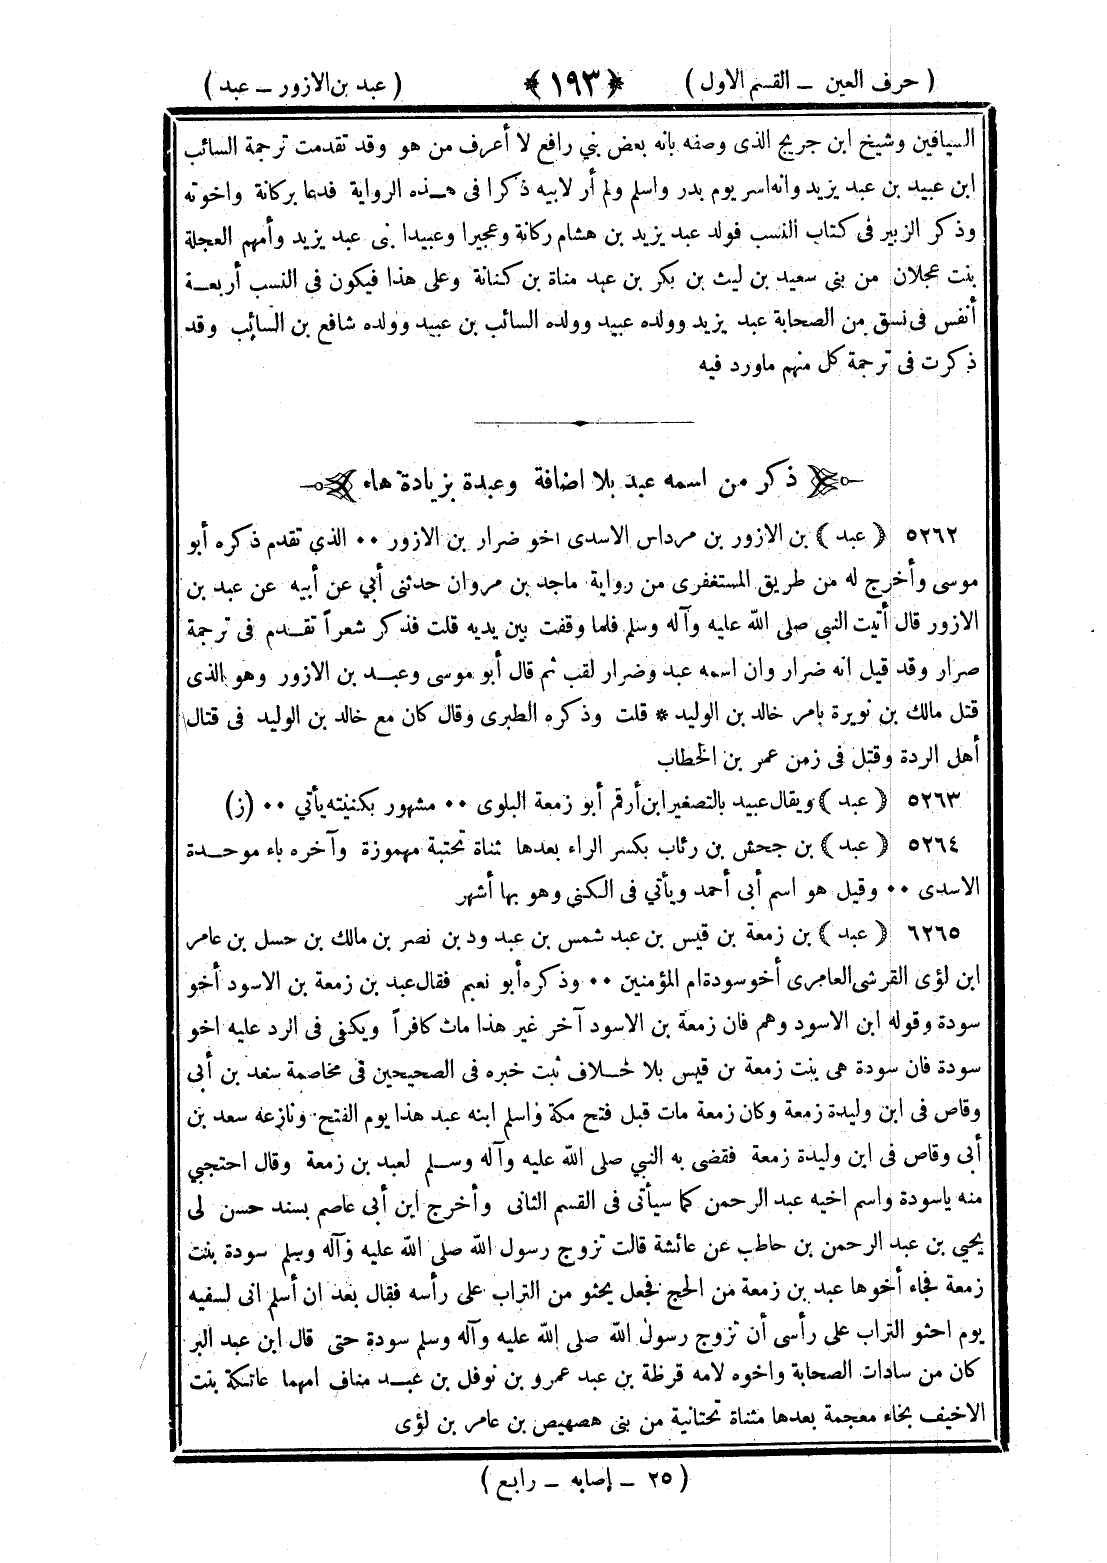 ( حرف العين ــ القسم الاول ) ﴿ ١٩٣ ﴾ ( عبد بن الازور ــ عبد )
السياقين وشيخ ابن جريج الذى وصفه بانه بعض بني رافع لا أعرف من هو وقد تقدمت ترجمة السائب
ابن عبيد بن عبد يزيد وانه اسر يوم بدر واسلم ولم أر لابيه ذكرا فى هـذه الرواية فدعا بركانة واخوته
وذكر الزبير فى كتاب النسب فولد عبد يزيد بن هشام ركانة وعجيرا وعبيدا بنى عبد يزيد وأمهم العجلة
بنت عجلان من بنى سعيد بن ليث بن بكر بن عبد مناة بن كنانة وعلى هذا فيكون فى النسب أربعـة
أنفس فى نسق من الصحابة عبد يزيد وولده عبيد وولده السائب بن عبيد وولده شافع بن السائب وقد
ذكرت فى ترجمة كل منهم ماورد فيه
ذكر من اسمه عبد بلا اضافة وعبدة بزيادة هاء
٥٢٦٢ ( عبد ) بن الازور بن مرداس الاسدى اخو ضرار بن الازور ٠٠ الذي تقدم ذكره أبو
موسى وأخرج له من طريق المستغفرى من رواية ماجد بن مروان حدثنى أبي عن أبيه عن عبد بن
الازور قال أتيت النبي صلى الله عليه وآله وسلم فلما وقفت بين يديه قلت فذكر شعراً تقـدم فى ترجمة
صرار وقد قيل انه ضرار وان اسمه عبد وضرار لقب ثم قال أبو موسى وعبـد بن الازور وهو الذى
قتل مالك بن نويرة بامر خالد بن الوليد * قلت وذكره الطبرى وقال كان مع خالد بن الوليد فى قتال
أهل الردة وقتل فى زمن عمر بن الخطاب
٥٢٦٣ ( عبد ) ويقال عبيد بالتصغير ابن أرقم أبو زمعة البلوى ٠٠ مشهور بكنيته يأتي ٠٠ (ز)
٥٢٦٤ ( عبد ) بن جحش بن رئاب بكسر الراء بعدها ثناة تحتية مهموزة وآخره باء موحـدة
الاسدى ٠٠ وقيل هو اسم أبى أحمد ويأتي فى الكنى وهو بها أشهر
٦٢٦٥ ( عبد ) بن زمعة بن قيس بن عبد شمس بن عبد ود بن نصر بن مالك بن حسل بن عامر
ابن لؤى القرشى العامرى أخو سودة ام المؤمنين ٠٠ وذكره أبو نعيم فقال عبد بن زمعة بن الاسود أخو
سودة وقوله ابن الاسود وهم فان زمعة بن الاسود آخر غير هذا مات كافراً ويكفى فى الرد عليه اخو
سودة فان سودة هى بنت زمعة بن قيس بلا خـلاف ثبت خبره فى الصحيحين فى مخاصمة سعد بن أبى
وقاص فى ابن وليدة زمعة وكان زمعة مات قبل فتح مكة واسلم ابنه عبد هذا يوم الفتح ونازعه سعد بن
أبى وقاص فى ابن وليدة زمعة فقضى به النبي صلى الله عليه وآله وسـلم لعبد بن زمعة وقال احتجبي
منه ياسودة واسم اخيه عبد الرحمن كما سيأتى فى القسم الثانى وأخرج ابن أبى عاصم بسند حسن لى
يحيى بن عبد الرحمن بن حاطب عن عائشة قالت تزوج رسول الله صلى الله عليه وآله وسلم سودة بنت
زمعة فجاء أخوها عبد بن زمعة من الحج فجعل يحثو من التراب على رأسه فقال بعد ان أسلم انى لسفيه
يوم احثو التراب على رأسى أن تزوج رسول الله صلى الله عليه وآله وسلم سودة حتى قال ابن عبد البر
كان من سادات الصحابة واخوه لامه قرظة بن عبد عمرو بن نوفل بن عبـد مناف امهما عاتكة بنت
الاخيف بخاء معجمة بعدها مثناة تحتانية من بنى هصيص بن عامر بن لؤى
( ٢٥ ــ إصابه ــ رابع )